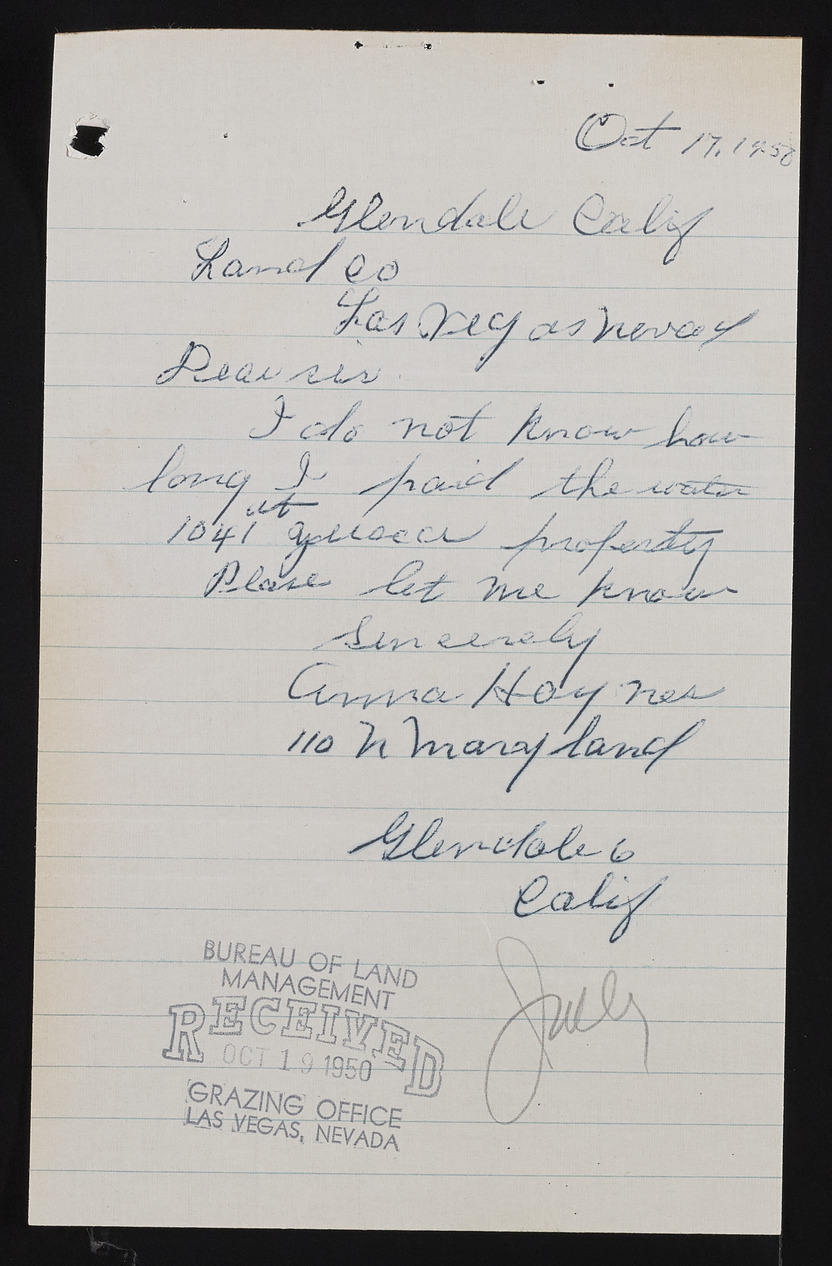 Oct 17, 1950
Glendale Calif
Land Co
Las Vegas Nevad
Dear sir
I do not know how
long I paid the water
at
1041 property
Please let me know
Sincerely
Anna Haynes
110 N Maryland
Glendale 6
Calif
BUREAU OF LAND
MANAGEMENT
RECEIVED
OCT 19 1950
GRAZING OFFICE
LAS VEGAS, NEVADA